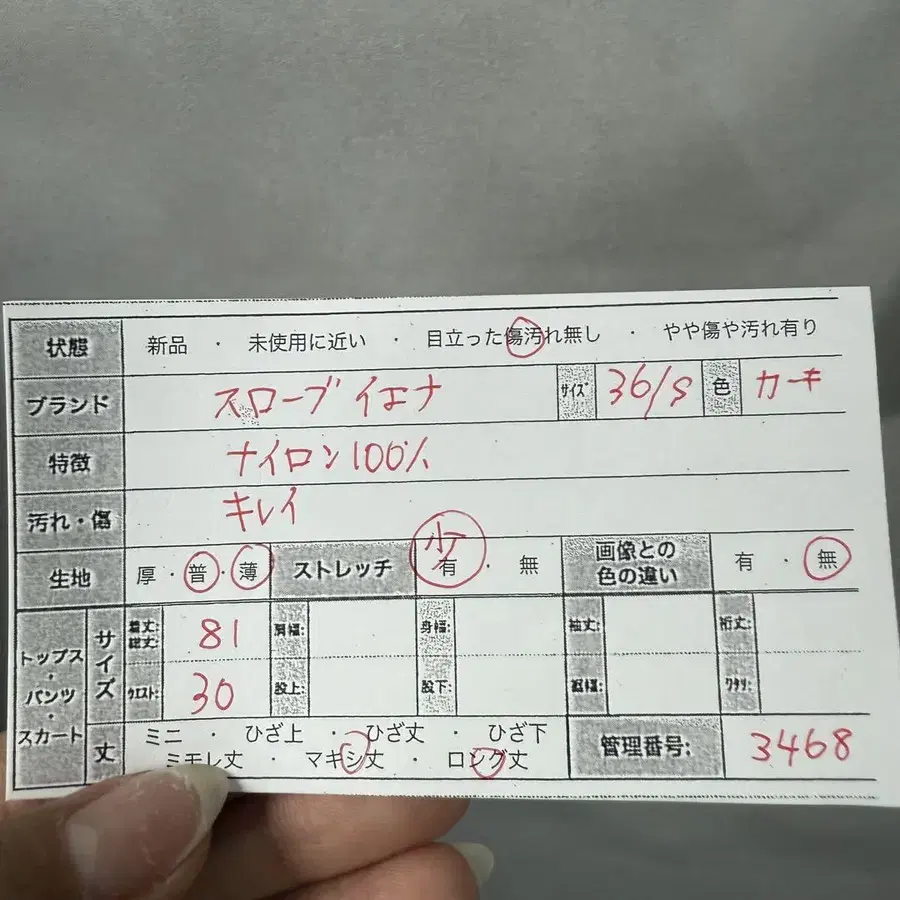 状態 新品 ・ 未使用に近い ・ 目立った傷汚れ無し ・ やや傷や汚れ有り
ブランド スローブ イエナ サイズ 36/S 色 カーキ
特徴 ナイロン100%
汚れ・傷 キレイ
生地 厚・普・薄 ストレッチ 少 有 ・ 無 画像との色の違い 有 ・ 無
トップス・パンツ・スカート サイズ 着丈: 総丈: 81 肩幅: 身幅: 袖丈: 裄丈:
ウエスト: 30 股上: 股下: 裾幅: ワタリ:
丈 ミニ ・ ひざ上 ・ ひざ丈 ・ ひざ下
ミモレ丈 ・ マキシ丈 ・ ロング丈
管理番号: 3468